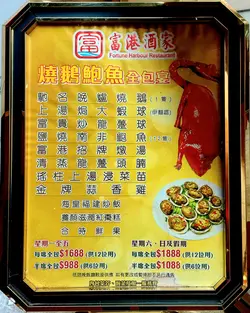 富港酒家
Fortune Harbour Restaurant
燒鵝鮑魚全包宴
馳名晚爐燒鵝(1隻)
上湯焗大蝦球
富貴炒龍躉球
鹽燒南非鮑魚
富港招牌燉湯
清蒸龍躉頭腩
瑤柱上湯浸菜苗
金牌蒜香雞
海皇福建炒飯
養顏滋潤紅棗糕
合時鮮果
星期一至五
每席全包$1688(供12位用)
半席全包$988(供6位用)
星期六、日及假期
每席全包$1888(供12位用)
半席全包$1088(供6位用)